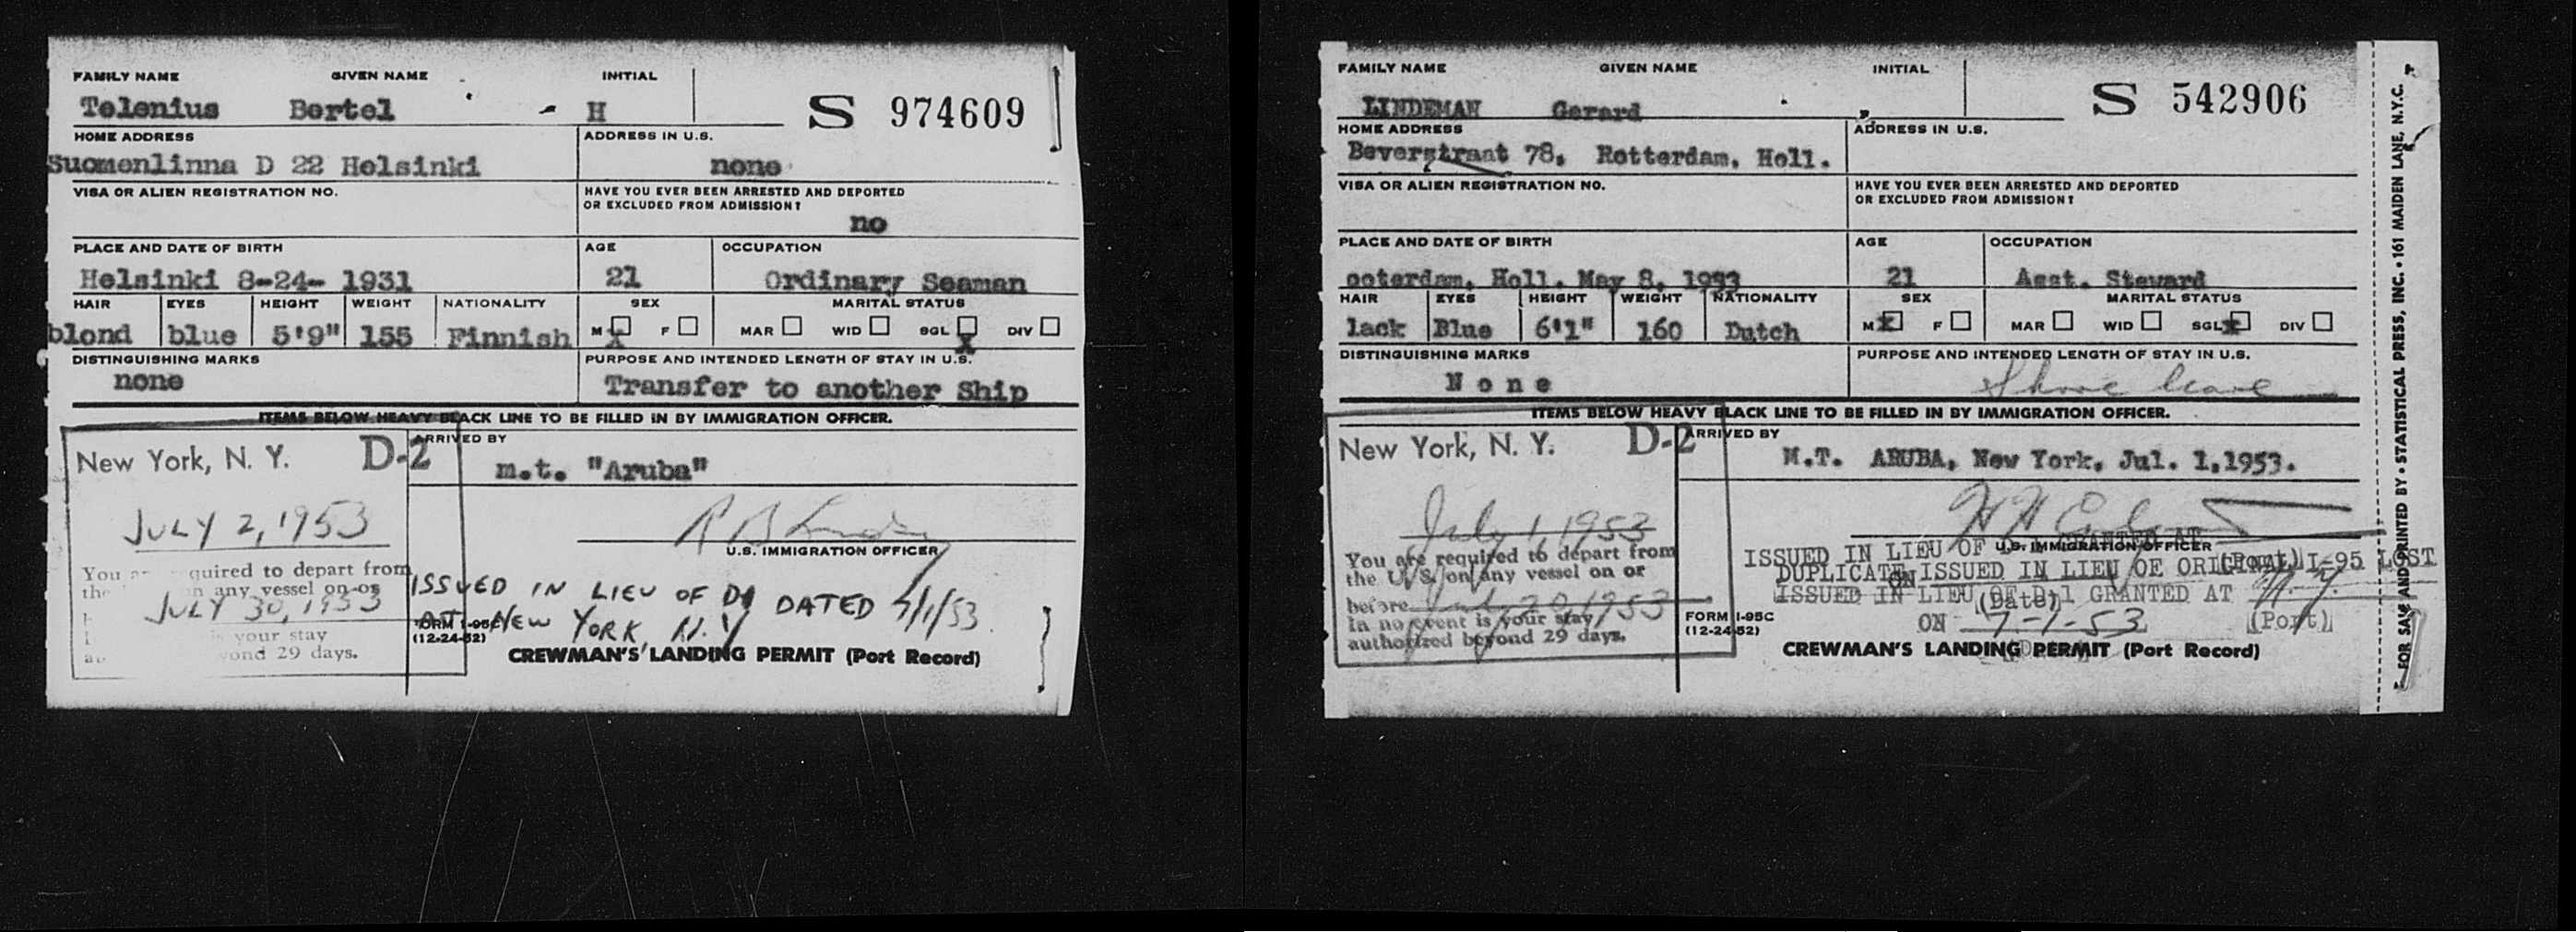 FAMILY NAME GIVEN NAME INITIAL
Telenius Bertel - H
S 974609
HOME ADDRESS ADDRESS IN U.S.
Suomenlinna D 22 Helsinki none
VISA OR ALIEN REGISTRATION NO. HAVE YOU EVER BEEN ARRESTED AND DEPORTED
OR EXCLUDED FROM ADMISSION?
no
PLACE AND DATE OF BIRTH AGE OCCUPATION
Helsinki 8-24- 1931 21 Ordinary Seaman
HAIR EYES HEIGHT WEIGHT NATIONALITY SEX MARITAL STATUS
blond blue 5'9" 155 Finnish M X F MAR WID SGL X DIV
DISTINGUISHING MARKS PURPOSE AND INTENDED LENGTH OF STAY IN U.S.
none Transfer to another Ship
ITEMS BELOW HEAVY BLACK LINE TO BE FILLED IN BY IMMIGRATION OFFICER.
New York, N. Y. D-2 ARRIVED BY
m.t. "Aruba"
JULY 2, 1953
U.S. IMMIGRATION OFFICER
You quired to depart from
the n any vessel on or
JULY 30, 1953
is your stay
ond 29 days.
ISSUED IN LIEU OF D1 DATED 7/1/53
AT NEW YORK, N.Y
FORM I-95C
(12-24-52)
CREWMAN'S LANDING PERMIT (Port Record)
FAMILY NAME GIVEN NAME INITIAL
LINDEMAN Gerard
S 542906
HOME ADDRESS ADDRESS IN U.S.
Beverstraat 78, Rotterdam, Holl.
VISA OR ALIEN REGISTRATION NO. HAVE YOU EVER BEEN ARRESTED AND DEPORTED
OR EXCLUDED FROM ADMISSION?
PLACE AND DATE OF BIRTH AGE OCCUPATION
ooterdam, Holl. May 8, 21 Asst. Steward
HAIR EYES HEIGHT WEIGHT NATIONALITY SEX MARITAL STATUS
lack Blue 6'1" 160 Dutch M X F MAR WID SGL X DIV
DISTINGUISHING MARKS PURPOSE AND INTENDED LENGTH OF STAY IN U.S.
None Shore leave
ITEMS BELOW HEAVY BLACK LINE TO BE FILLED IN BY IMMIGRATION OFFICER.
New York, N. Y. D-2 ARRIVED BY
M.T. ARUBA, New York, Jul. 1,1953.
July 1, 1953
U.S. IMMIGRATION OFFICER
You are required to depart from
the U. S. on any vessel on or
before
In no event is your stay
authorized beyond 29 days.
ISSUED IN LIEU OF GRANTED AT
(Port)
DUPLICATE ISSUED IN LIEU OF ORIGINAL I-95 LOST
ON
(Date)
ISSUED IN LIEU OF D-1 GRANTED AT N.Y.
(Port)
ON 7-1-53
FORM I-95C
(12-24-52)
CREWMAN'S LANDING PERMIT (Port Record)
FOR SALE AND PRINTED BY • STATISTICAL PRESS, INC. • 161 MAIDEN LANE, N.Y.C. 7